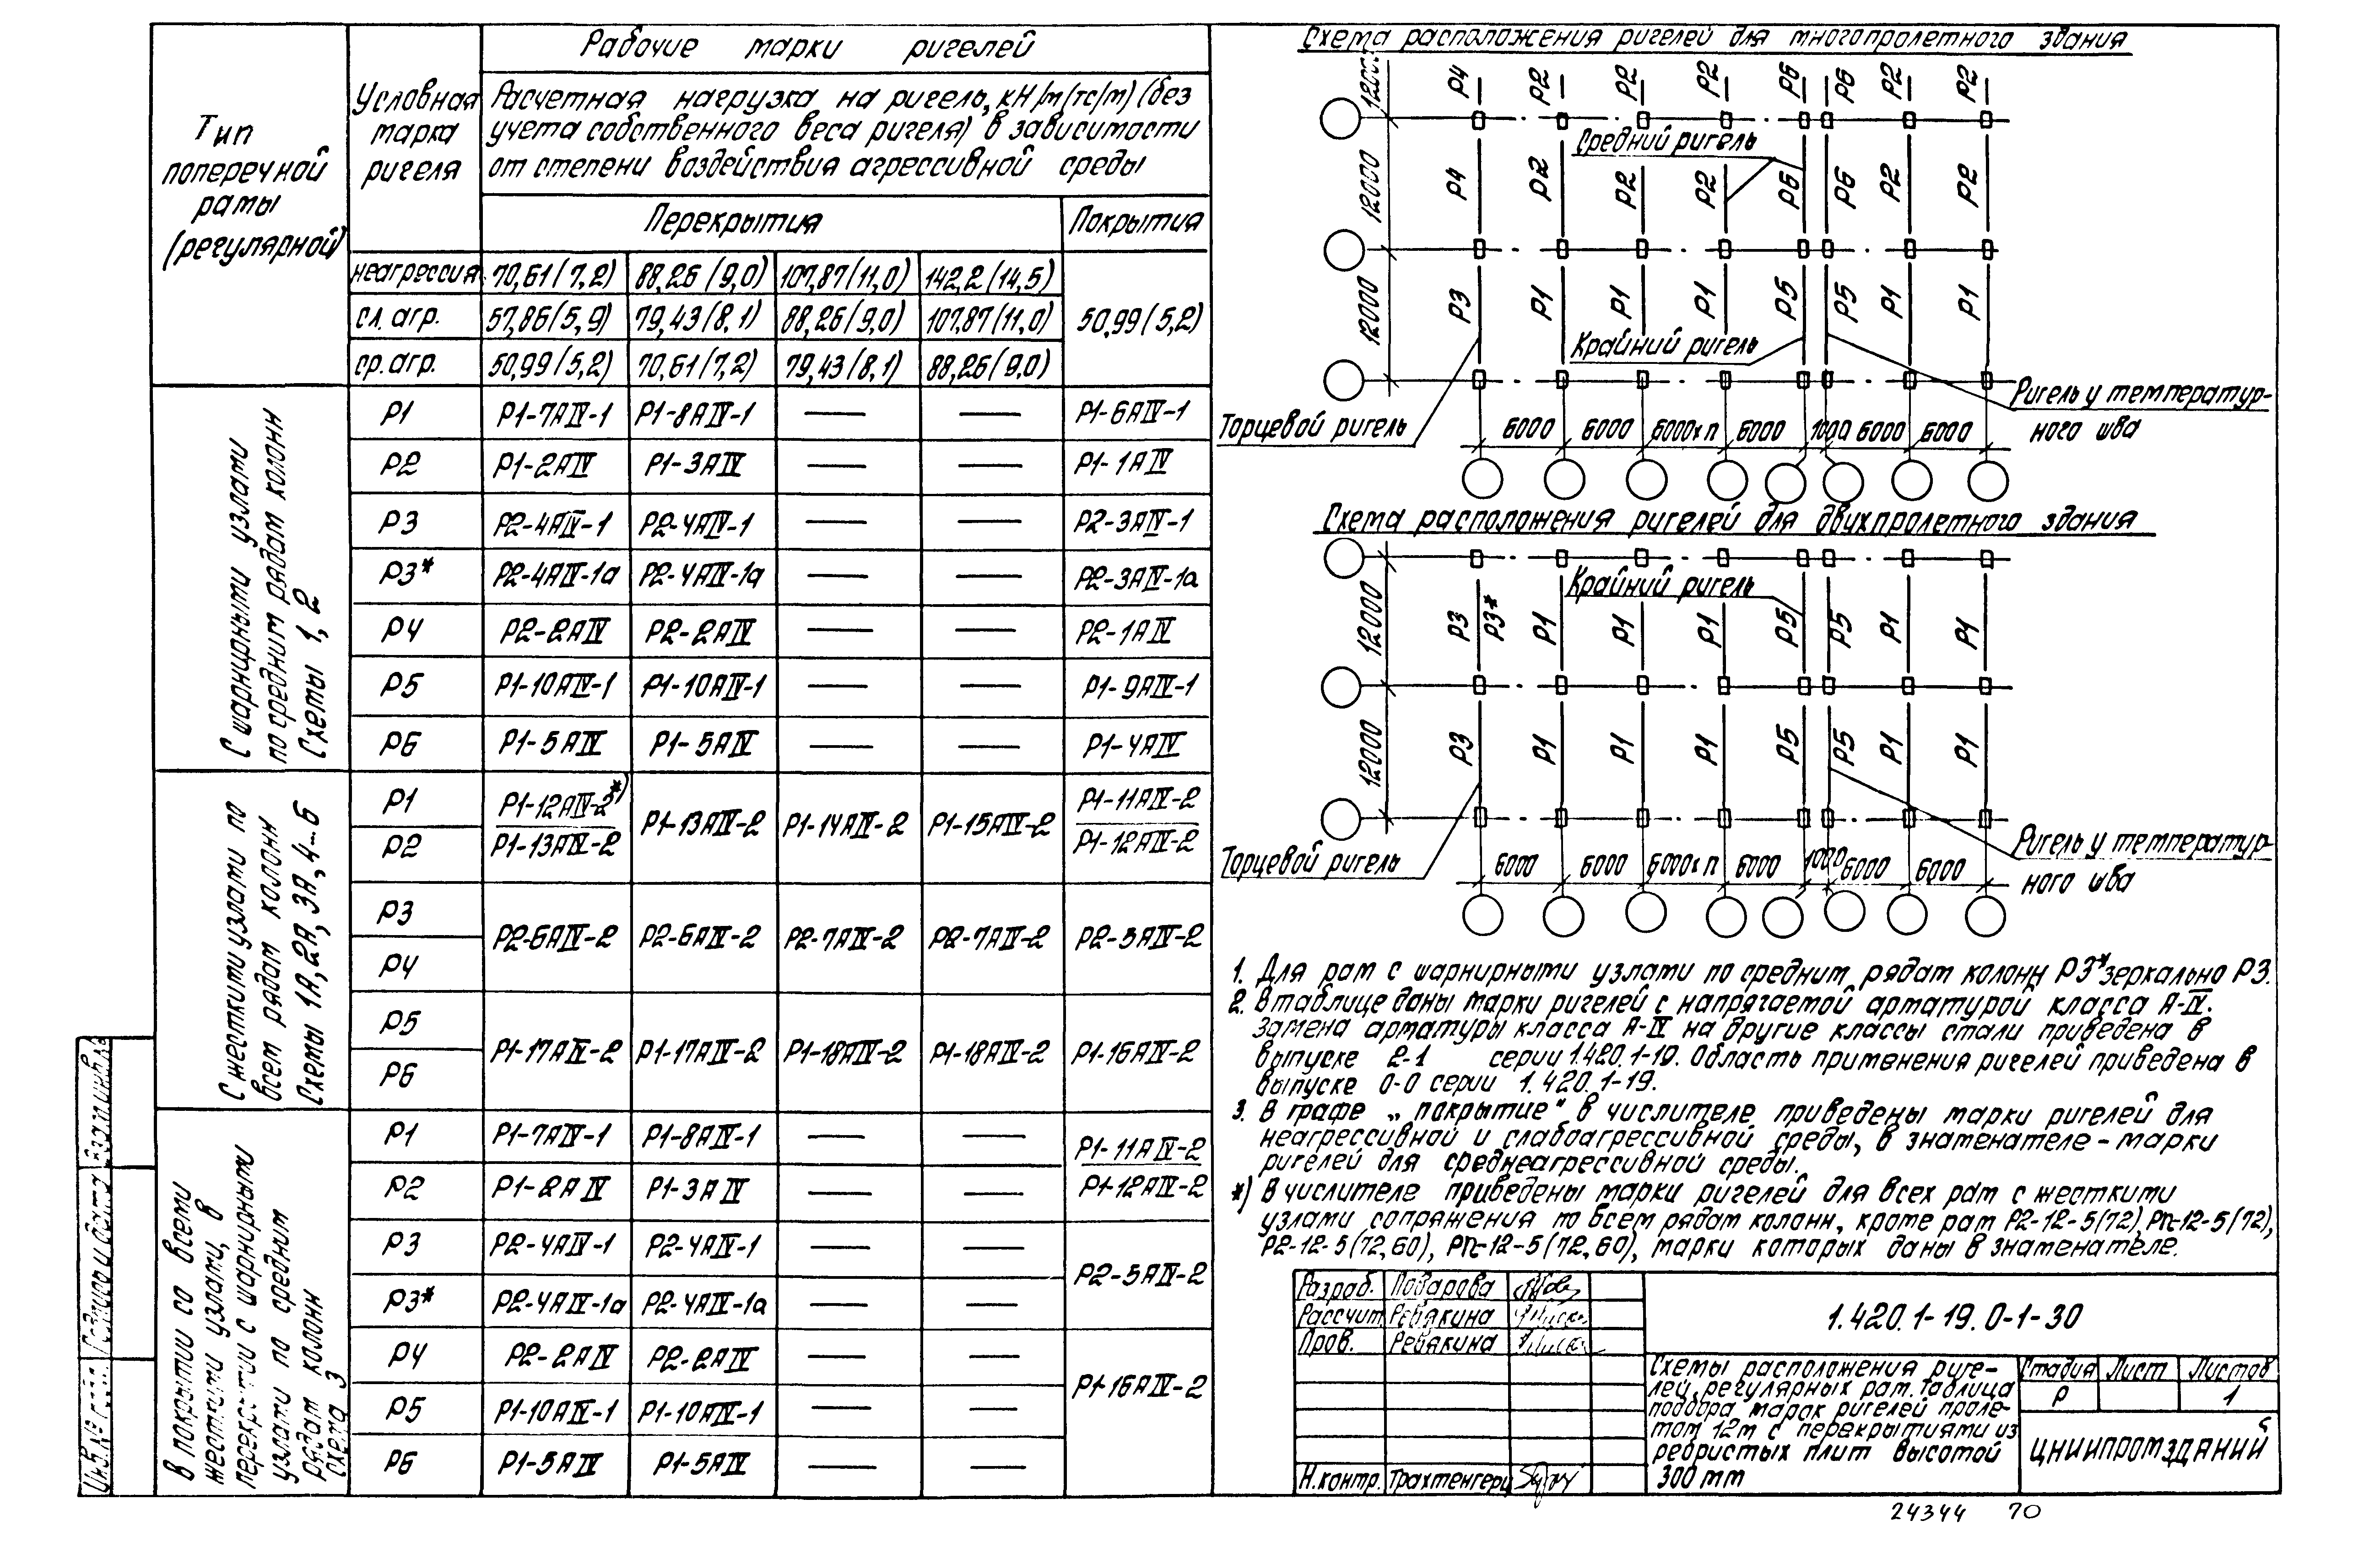 Тип
поперечной
рамы
(регулярной)
Условная
марка
ригеля
Рабочие марки ригелей
Расчетная нагрузка на ригель, кН/м (тс/м) (без
учета собственного веса ригеля) в зависимости
от степени воздействия агрессивной среды
Перекрытия
Покрытия
неагрессия 70,61(7,2) 88,26(9,0) 107,87(11,0) 142,2(14,5)
сл. агр. 57,86(5,9) 79,43(8,1) 88,26(9,0) 107,87(11,0) 50,99(5,2)
ср. агр. 50,99(5,2) 70,61(7,2) 79,43(8,1) 88,26(9,0)
С шарнирными узлами
по средним рядам колонн
Схемы 1, 2
Р1 Р1-7АIV-1 Р1-8АIV-1 — — Р1-6АIV-1
Р2 Р1-2АIV Р1-3АIV — — Р1-1АIV
Р3 Р2-4АIV-1 Р2-4АIV-1 — — Р2-3АIV-1
Р3* Р2-4АIV-1а Р2-4АIV-1а — — Р2-3АIV-1а
Р4 Р2-2АIV Р2-2АIV — — Р2-1АIV
Р5 Р1-10АIV-1 Р1-10АIV-1 — — Р1-9АIV-1
Р6 Р1-5АIV Р1-5АIV — — Р1-4АIV
С жесткими узлами по
всем рядам колонн
Схемы 1А, 2А, 3А, 4-6
Р1 Р1-12АIV-2*) Р1-11АIV-2
Р1-13АIV-2 Р1-14АIV-2 Р1-15АIV-2
Р2 Р1-13АIV-2 Р1-12АIV-2
Р3
Р2-6АIV-2 Р2-6АIV-2 Р2-7АIV-2 Р2-7АIV-2 Р2-5АIV-2
Р4
Р5
Р1-17АIV-2 Р1-17АIV-2 Р1-18АIV-2 Р1-18АIV-2 Р1-16АIV-2
Р6
В покрытии со всеми
жесткими узлами, в
перекрытии с шарнирными
узлами по средним
рядам колонн
схема 3
Р1 Р1-7АIV-1 Р1-8АIV-1 — — Р1-11АIV-2
Р2 Р1-2АIV Р1-3АIV — — Р1-12АIV-2
Р3 Р2-4АIV-1 Р2-4АIV-1 — —
Р2-5АIV-2
Р3* Р2-4АIV-1а Р2-4АIV-1а — —
Р4 Р2-2АIV Р2-2АIV — —
Р1-16АIV-2
Р5 Р1-10АIV-1 Р1-10АIV-1 — —
Р6 Р1-5АIV Р1-5АIV — —
Схема расположения ригелей для многопролетного здания
12000
Р4 Р2 Р2 Р2 Р6 Р6 Р2 Р2
Средний ригель
12000
Р4 Р2 Р2 Р2 Р6 Р6 Р2 Р2
12000
Р3 Р1 Р1 Р1 Р5 Р5 Р1 Р1
Крайний ригель
Торцевой ригель
Ригель у температур-
ного шва
6000 6000 6000хп 6000 1000 6000 6000
Схема расположения ригелей для двухпролетного здания
Крайний ригель
12000
Р3 Р3* Р1 Р1 Р1 Р5 Р5 Р1 Р1
12000
Р3 Р1 Р1 Р1 Р5 Р5 Р1 Р1
Торцевой ригель
Ригель у температур-
ного шва
6000 6000 6000хп 6000 1000 6000 6000
1. Для рам с шарнирными узлами по средним рядам колонн Р3* зеркально Р3.
2. В таблице даны марки ригелей с напрягаемой арматурой класса А-IV.
Замена арматуры класса А-IV на другие классы стали приведена в
выпуске 2-1 серии 1.420.1-19. Область применения ригелей приведена в
выпуске 0-0 серии 1.420.1-19.
3. В графе „покрытие" в числителе приведены марки ригелей для
неагрессивной и слабоагрессивной среды, в знаменателе - марки
ригелей для среднеагрессивной среды.
*) В числителе приведены марки ригелей для всех рам с жесткими
узлами сопряжения по всем рядам колонн, кроме рам Р2-12-5(72), Рп-12-5(72),
Р2-12-5(72,60), Рп-12-5(72,60), марки которых даны в знаменателе.
Разраб. Поварова
Рассчит. Ревякина
Пров. Ревякина
Н.контр. Трахтенгерц
1.420.1-19.0-1-30
Схемы расположения риге-
лей регулярных рам. Таблица
подбора марок ригелей проле-
том 12м с перекрытиями из
ребристых плит высотой
300 мм
Стадия Лист Листов
Р 1
ЦНИИПРОМЗДАНИЙ
Взам.инв.№
Подпись и дата
Инв.№ подл.
24344 70